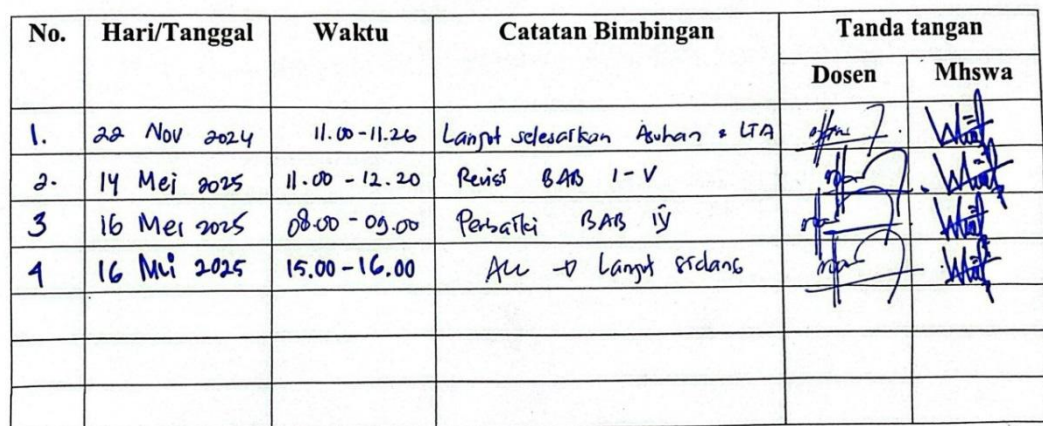 No. Hari/Tanggal Waktu Catatan Bimbingan Tanda tangan
Dosen Mhswa
1. 22 Nov 2024 11.00-11.26 Lanjut selesaikan Asuhan & LTA
2. 14 Mei 2025 11.00 - 12.20 Revisi BAB I-V
3 16 Mei 2025 08.00 - 09.00 Perbaiki BAB IV
4 16 Mei 2025 15.00-16.00 Acc → Lanjut sidang